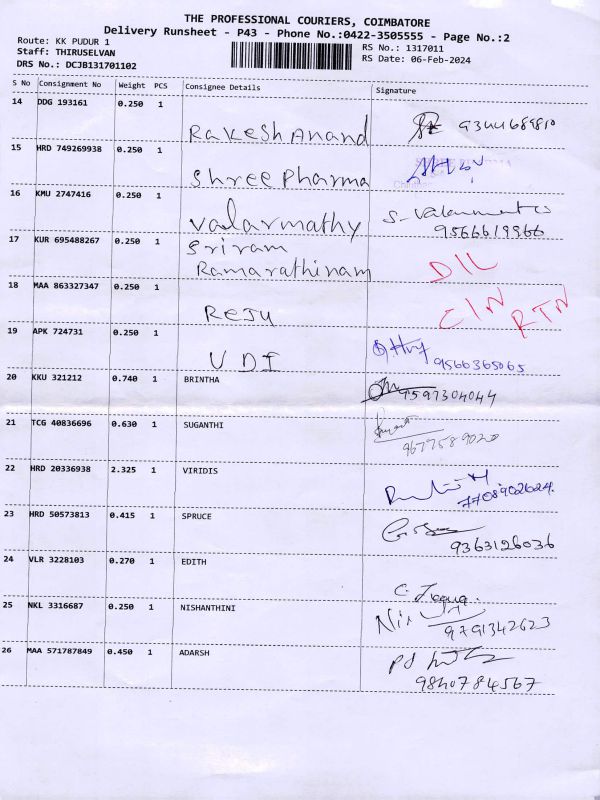 THE PROFESSIONAL COURIERS, COIMBATORE
Delivery Runsheet - P43 - Phone No.:0422-3505555 - Page No.:2
Route: KK PUDUR 1
Staff: THIRUSELVAN
DRS No.: DCJB131701102
RS No.: 1317011
RS Date: 06-Feb-2024
S No Consignment No Weight PCS Consignee Details Signature
14 DDG 193161 0.250 1
Rakesh Anand 9344689810
15 HRD 749269938 0.250 1
Shree Pharma
16 KMU 2747416 0.250 1
Valarmathy
9566619966
17 KUR 695488267 0.250 1
Sriram
Ramarathinam DIL
18 MAA 863327347 0.250 1
REJU CIN RTN
19 APK 724731 0.250 1
UDI 9566365065
20 KKU 321212 0.740 1 BRINTHA
7597304044
21 TCG 40836696 0.630 1 SUGANTHI
9677589020
22 HRD 20336938 2.325 1 VIRIDIS
7708902624.
23 HRD 50573813 0.415 1 SPRUCE
9363126036
24 VLR 3228103 0.270 1 EDITH
25 NKL 3316687 0.250 1 NISHANTHINI
9791342623
26 MAA 571787849 0.450 1 ADARSH
9840784567